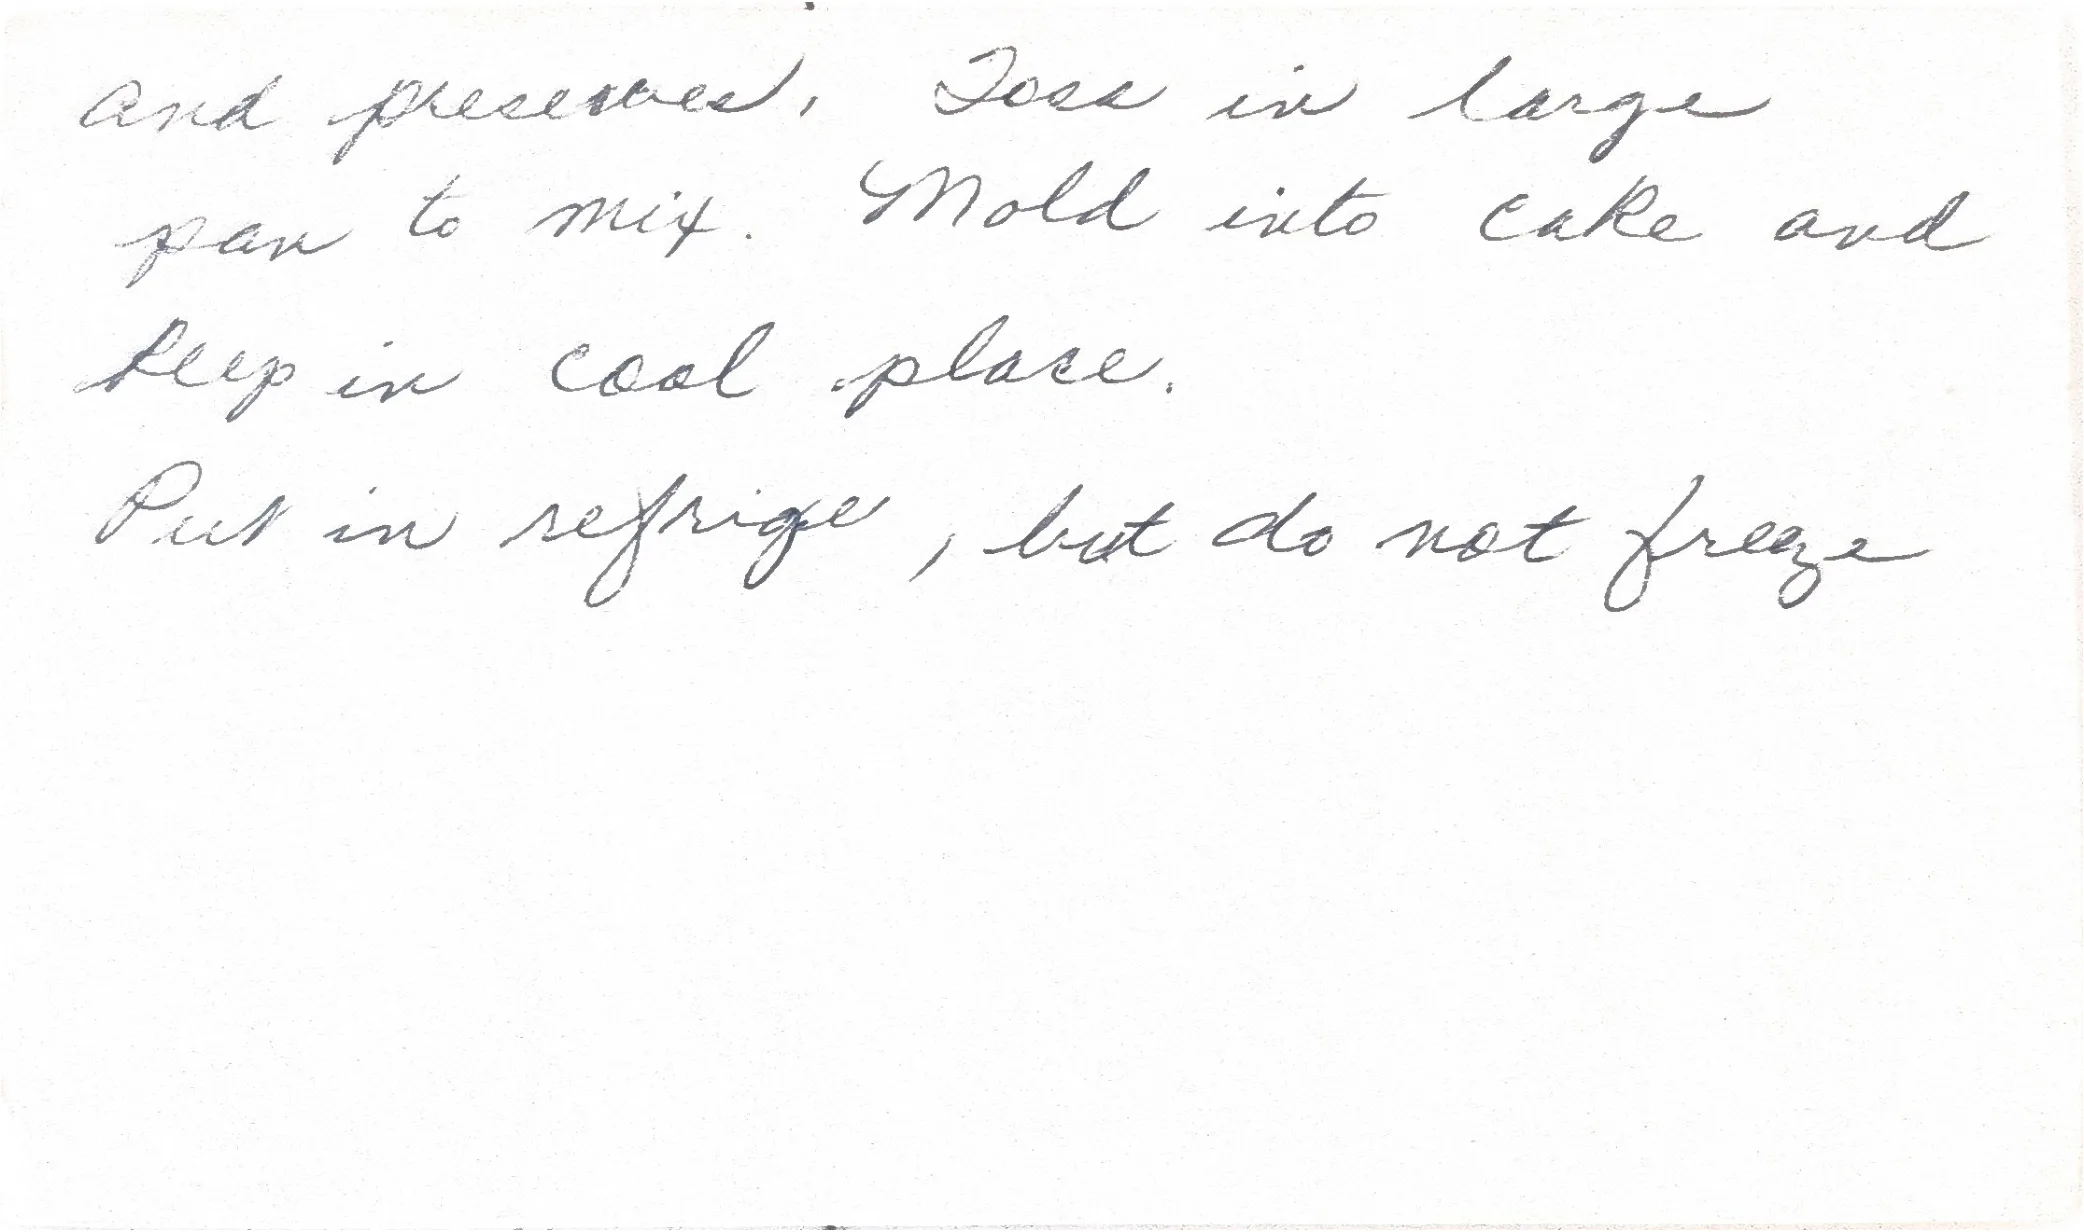 and preserves. Toss in large
pan to mix. Mold into cake and
keep in cool place.
Put in refrige, but do not freeze